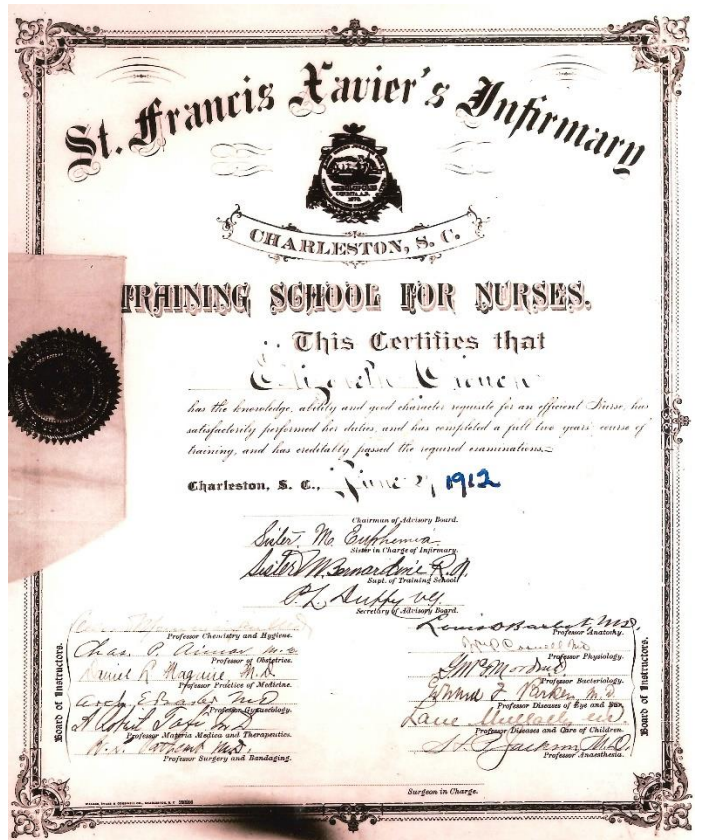 St. Francis Xavier's Infirmary
CHARLESTON, S. C.
TRAINING SCHOOL FOR NURSES.
This Certifies that
Elizabeth
has the knowledge, ability and good character requisite for an efficient Nurse, has
satisfactorily performed her duties, and has completed a full two years' course of
training, and has creditably passed the required examinations.
Charleston, S. C., June 1912
Chairman of Advisory Board.
Sister M. Euphemia
Sister in Charge of Infirmary.
Sister M. Bernardine R. N.
Supt. of Training School
P. L. Duffy VG.
Secretary of Advisory Board.
Board of Instructors.
Professor Chemistry and Hygiene.
Chas. P. Aimar M.D.
Professor of Obstetrics.
Daniel R Maguire M.D.
Professor Practice of Medicine.
Archie E Baker M.D.
Professor Gynaecology.
M.D.
Professor Materia Medica and Therapeutics.
M.D.
Professor Surgery and Bandaging.
M.D.
Professor Anatomy.
Professor Physiology.
Professor Bacteriology.
Edward F Parker M.D.
Professor Diseases of Eye and Ear.
Lane Mullally M.D.
Professor Diseases and Care of Children.
Jackson M.D.
Professor Anaesthesia.
Board of Instructors.
Surgeon in Charge.